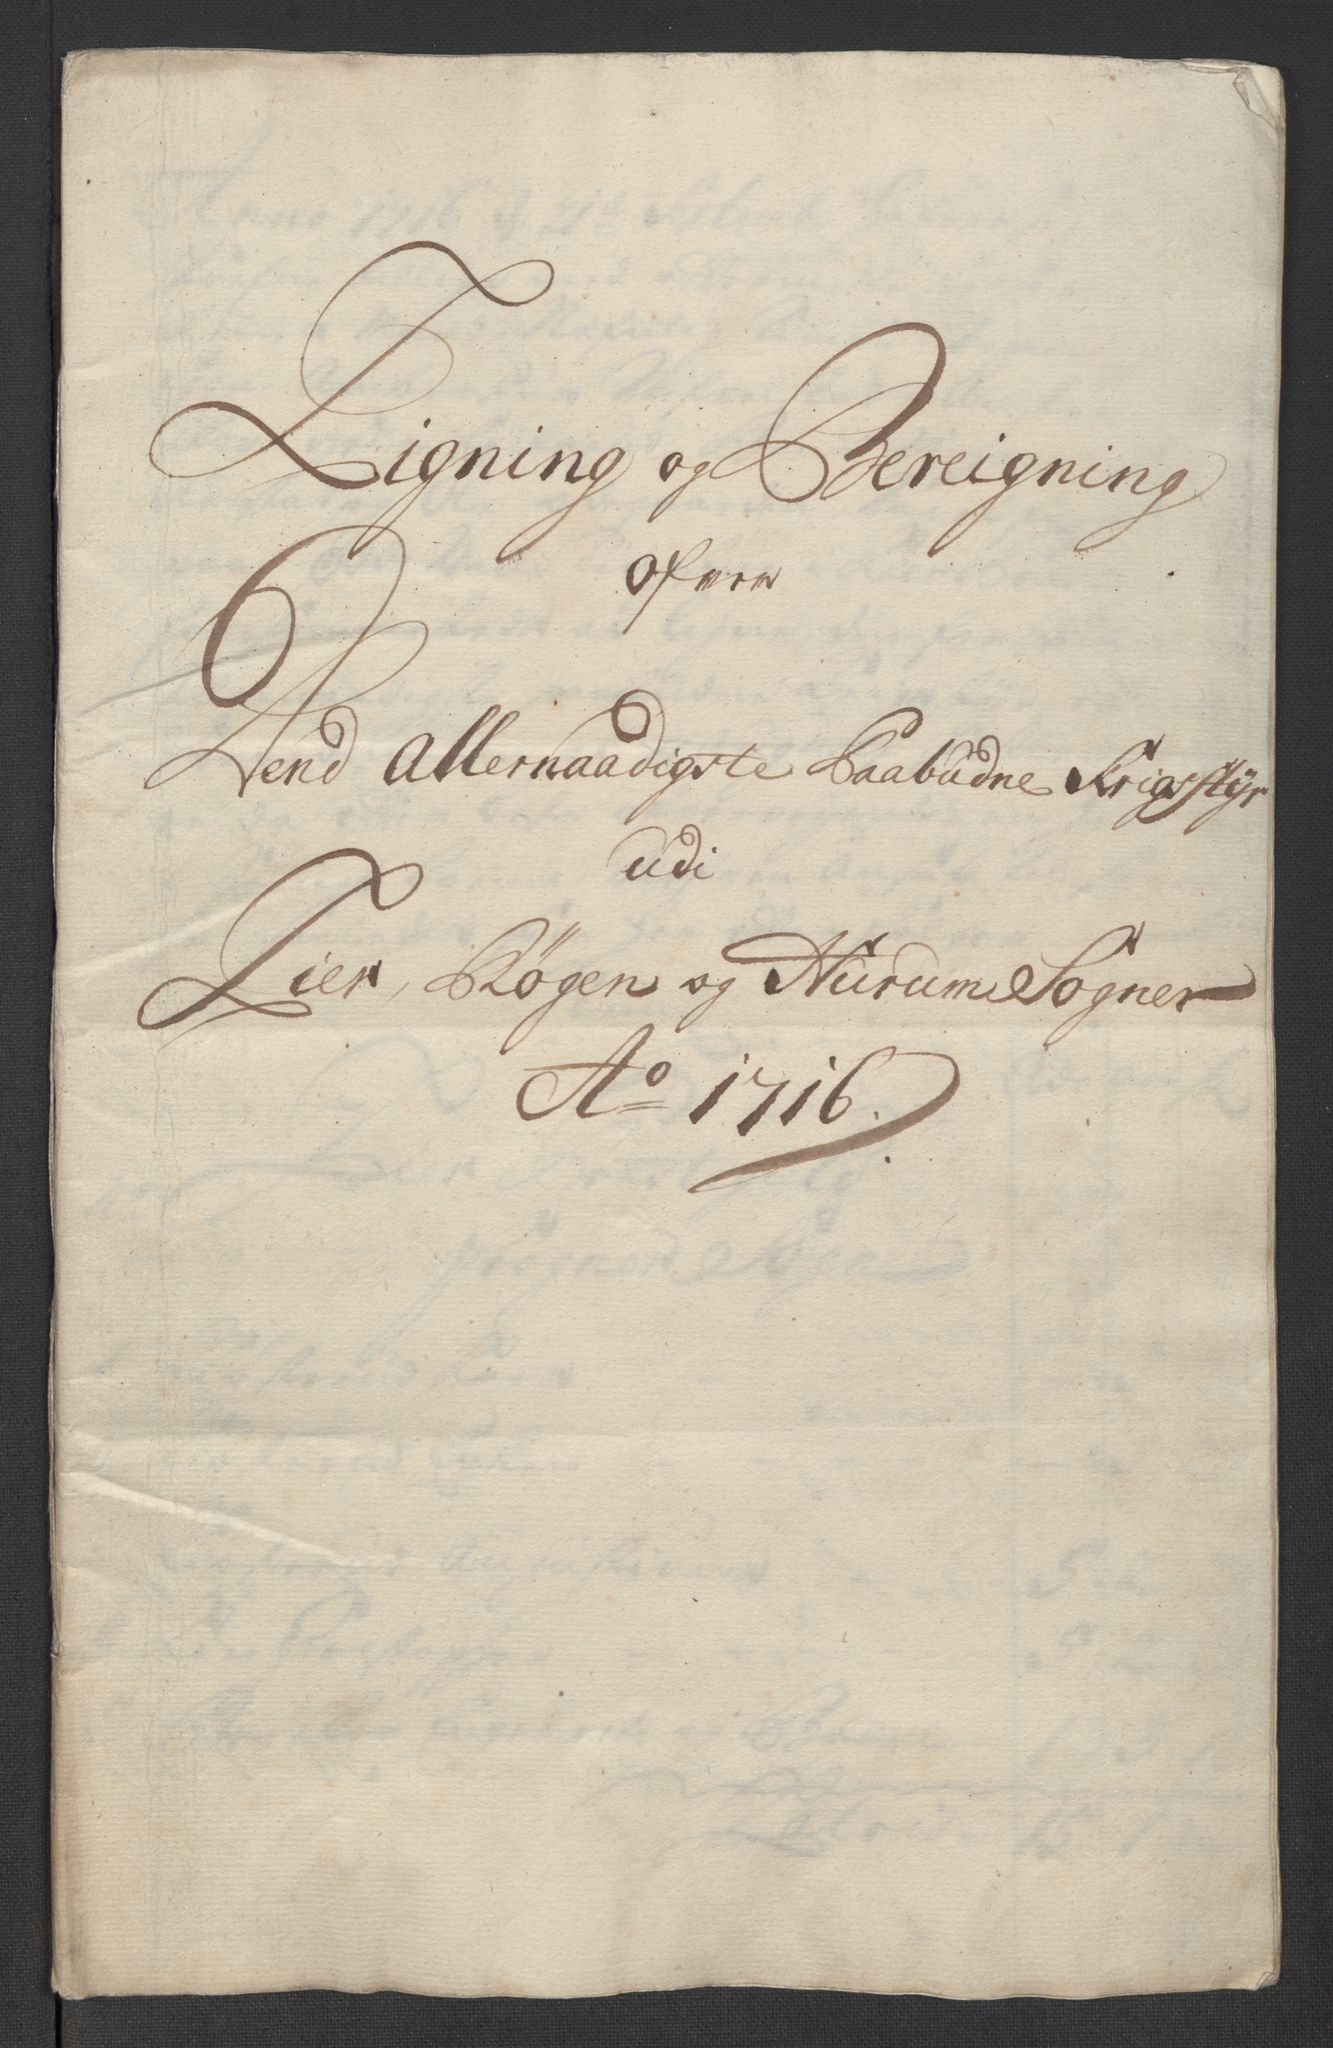 Ligning og Bereigning
ofver
Dend Allernaadigste Paabudne Krigsstÿr
udi
Lier, Røgen og Hurum Sogner
Ao 1716.